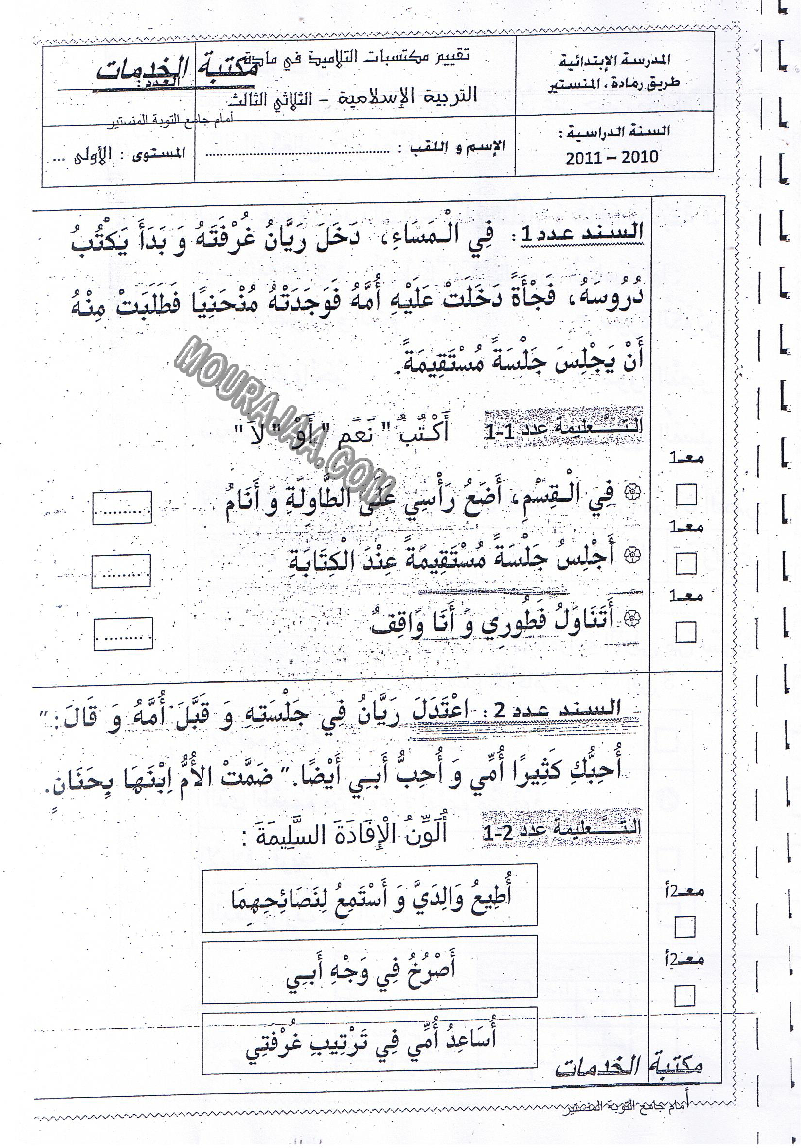 المدرسة الإبتدائية
طريق رمادة، المنستير
تقييم مكتسبات التلاميذ في مادة
التربية الإسلامية – الثلاثي الثالث
مكتبة الخدمات
العدد:
أمام جامع التوبة المنستير
السنة الدراسية :
2010 – 2011
الإسم و اللقب : ........................................
المستوى : الأولى ...
السند عدد 1: فِي الْمَسَاءِ، دَخَلَ رَيَّانُ غُرْفَتَهُ وَ بَدَأَ يَكْتُبُ
دُرُوسَهُ، فَجْأَةً دَخَلَتْ عَلَيْهِ أُمُّهُ فَوَجَدَتْهُ مُنْحَنِيًا فَطَلَبَتْ مِنْهُ
أَنْ يَجْلِسَ جَلْسَةً مُسْتَقِيمَةً.
MOURAJAA.COM
التـــعليمة عدد 1-1 أَكْتُبُ " نَعَم " أَوْ " لاَ "
معـ1
فِي الْقِسْمِ، أَضَعُ رَأْسِي عَلَى الطَّاوِلَةِ وَ أَنَامُ ..........
معـ1
أَجْلِسُ جَلْسَةً مُسْتَقِيمَةً عِنْدَ الْكِتَابَةِ ..........
معـ1
أَتَنَاوَلُ فَطُورِي وَ أَنَا وَاقِفُ ..........
السند عدد 2: اعْتَدَلَ رَيَّانُ فِي جَلْسَتِهِ وَ قَبَّلَ أُمَّهُ وَ قَالَ: "
أُحِبُّكِ كَثِيرًا أُمِّي وَ أُحِبُّ أَبِي أَيْضًا." ضَمَّتْ الأُمُّ اِبْنَهَا بِحَنَانٍ.
التـــعليمة عدد 2-1 أُلَوِّنُ الْإِفَادَةَ السَّلِيمَةَ :
معـ2أ
أُطِيعُ وَالِدَيَّ وَ أَسْتَمِعُ لِنَصَائِحِهِمَا
معـ2أ
أَصْرُخُ فِي وَجْهِ أَبِي
أُسَاعِدُ أُمِّي فِي تَرْتِيبِ غُرْفَتِي
مكتبة الخدمات
أمام جامع التوبة المنستير